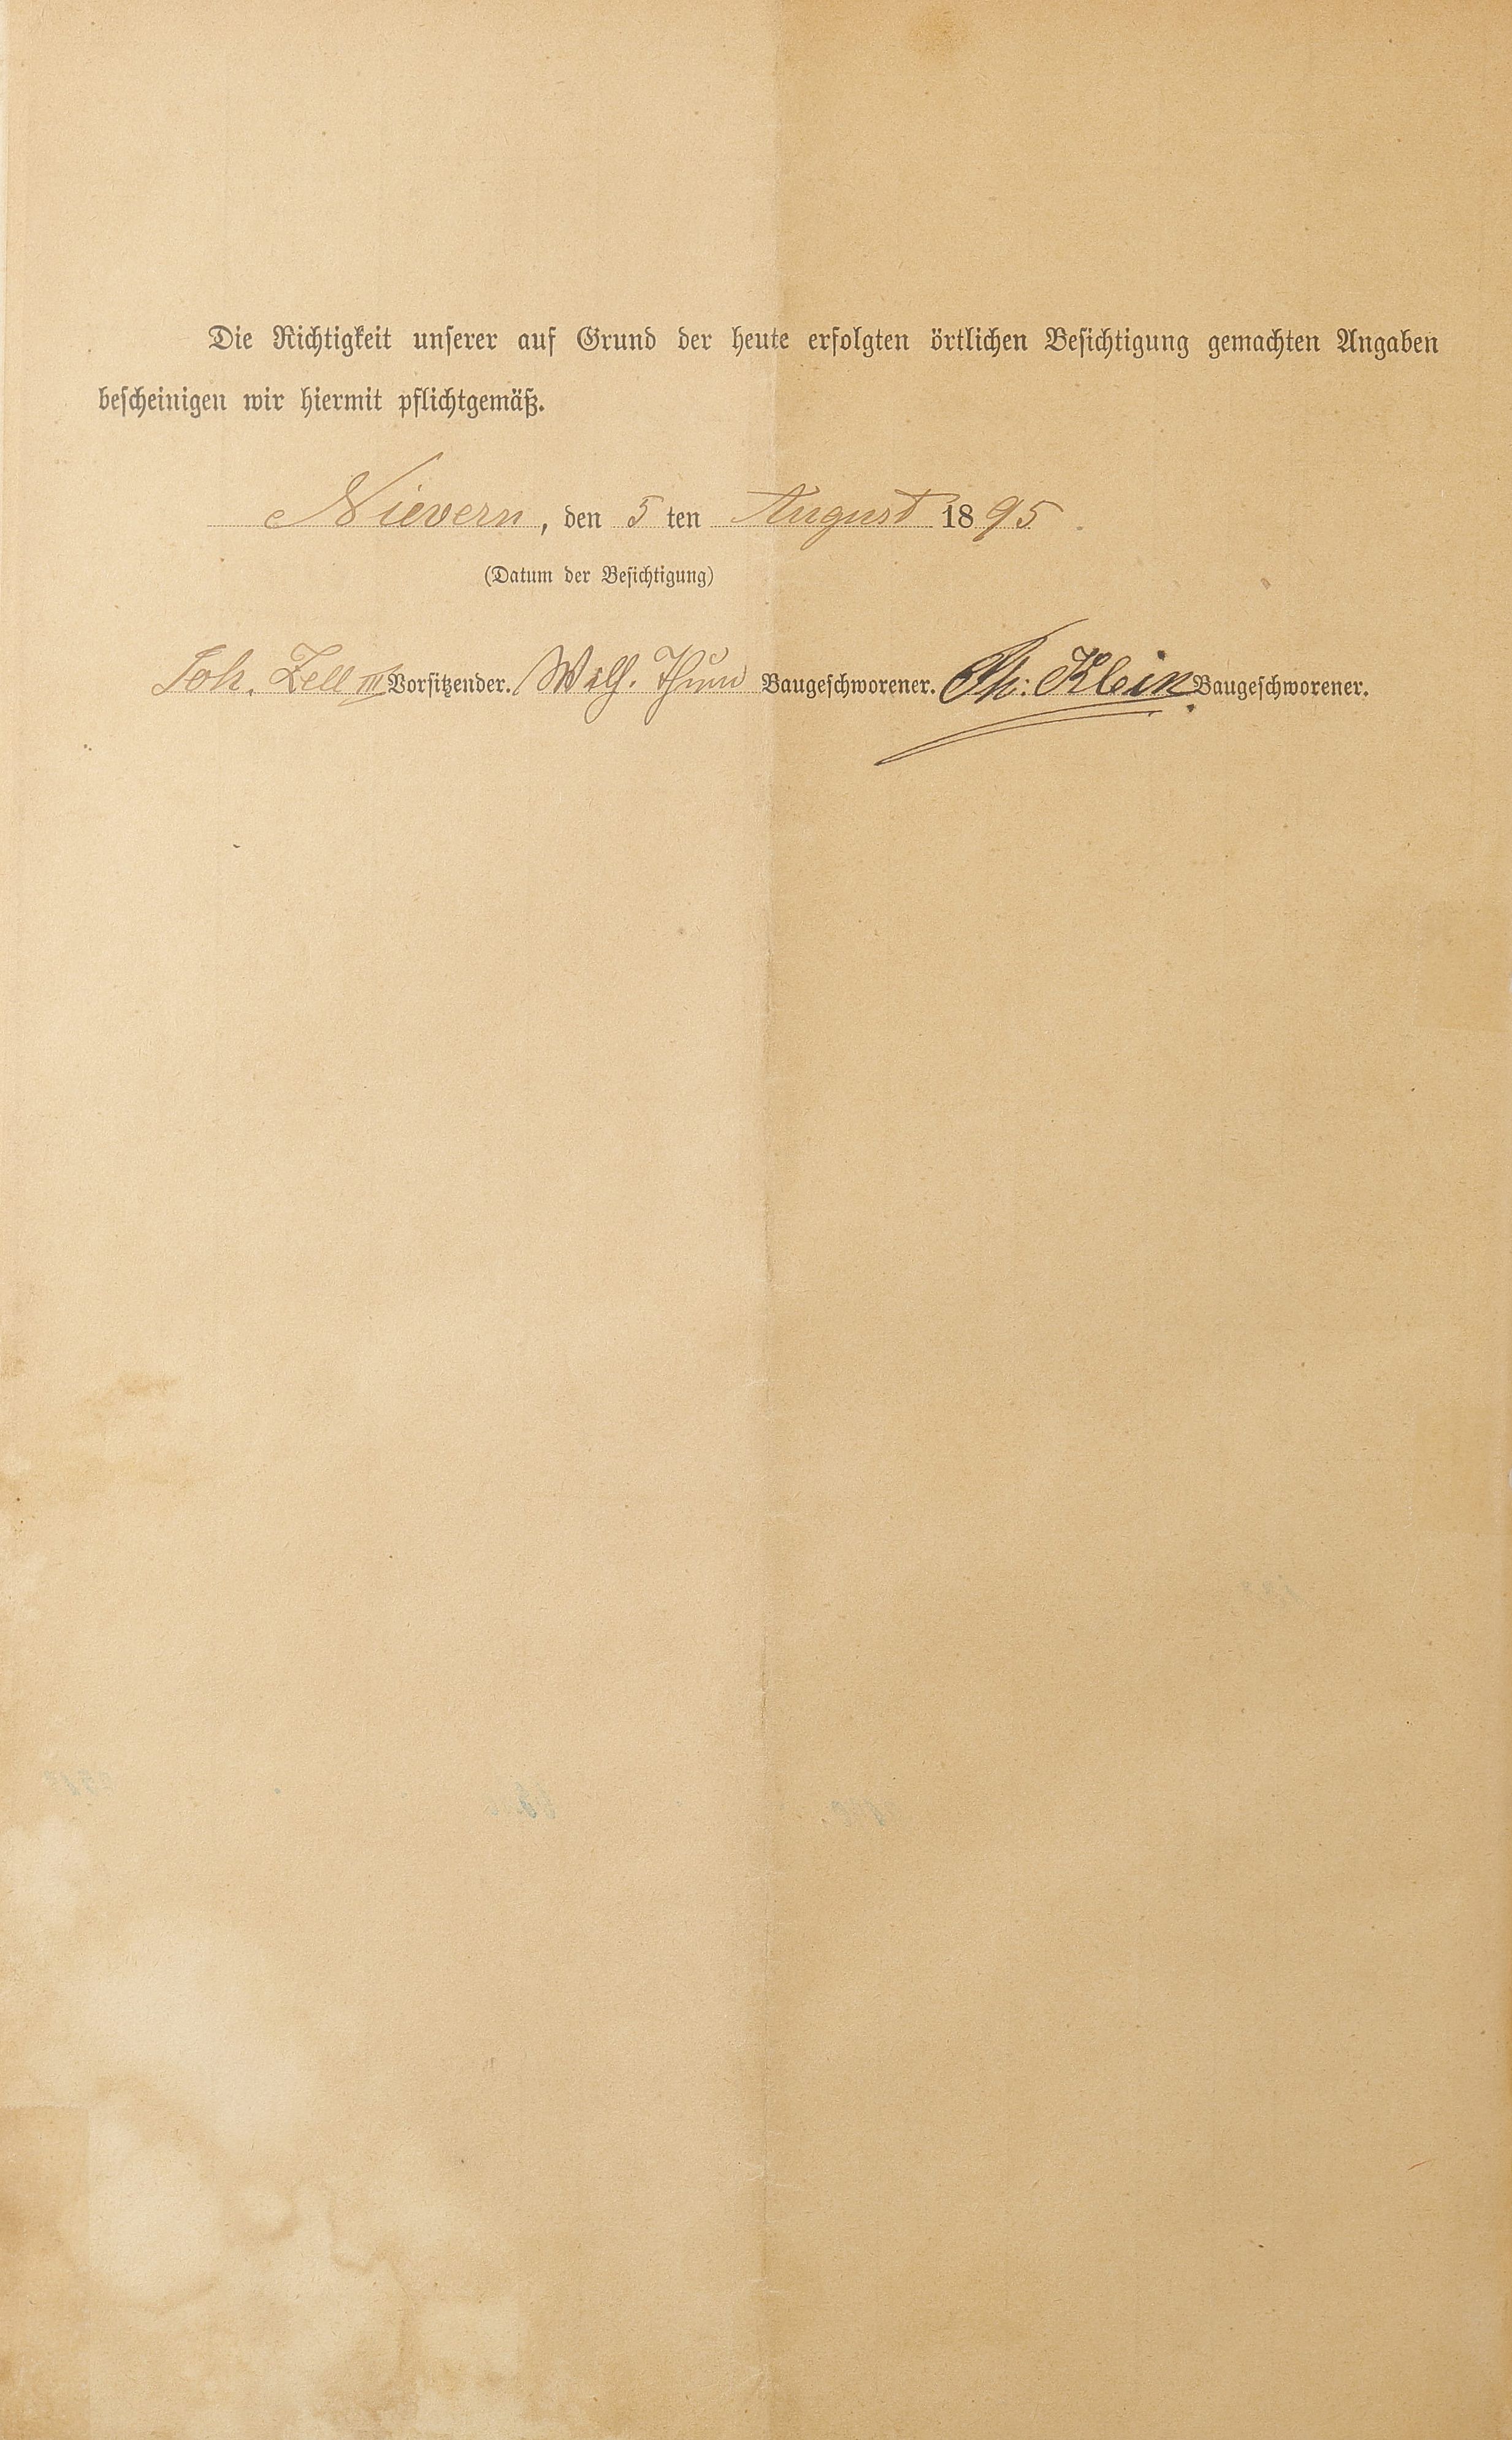 Die Richtigkeit unserer auf Grund der heute erfolgten örtlichen Besichtigung gemachten Angaben
bescheinigen wir hiermit pflichtgemäß.
Nievern, den 5 ten August 1895
(Datum der Besichtigung)
Joh. Zell III Vorsitzender. Wilh. Thum Baugeschworener. Ph: Klein Baugeschworener.